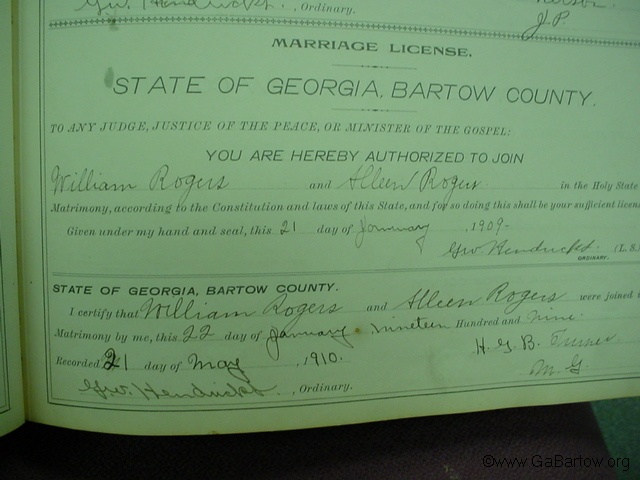 Geo. Hendricks. , Ordinary.
J.P.
MARRIAGE LICENSE.
STATE OF GEORGIA, BARTOW COUNTY.
TO ANY JUDGE, JUSTICE OF THE PEACE, OR MINISTER OF THE GOSPEL:
YOU ARE HEREBY AUTHORIZED TO JOIN
William Rogers and Alleen Rogers in the Holy State
Matrimony, according to the Constitution and laws of this State, and for so doing this shall be your sufficient licens
Given under my hand and seal, this 21 day of January , 1909-
Geo Hendricks. (L. S.)
ORDINARY.
STATE OF GEORGIA, BARTOW COUNTY.
I certify that William Rogers and Alleen Rogers were joined i
Matrimony by me, this 22 day of January nineteen Hundred and nine.
Recorded 21 day of May , 1910. H. G. B. Turner
M G
Geo. Hendricks , Ordinary.
©www.GaBartow.org